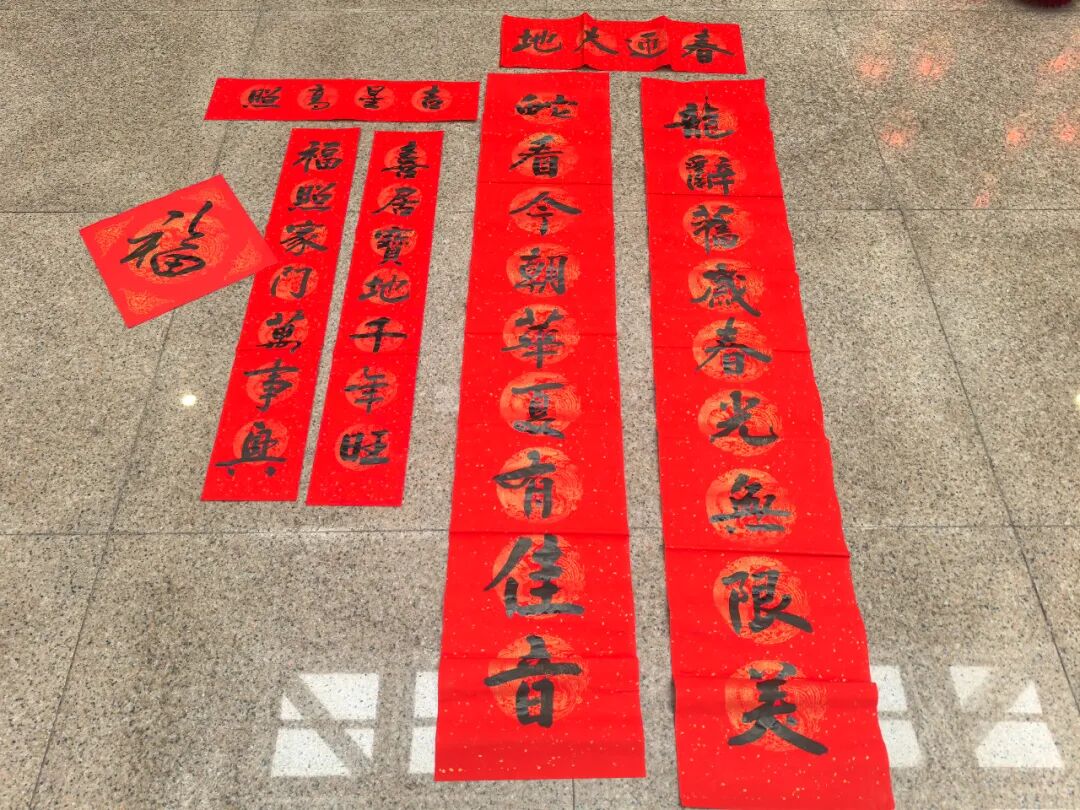 春迎大地
龍辭舊歲春光無限美
蛇看今朝華夏有佳音
吉星高照
喜居寶地千年旺
福照家门萬事興
福